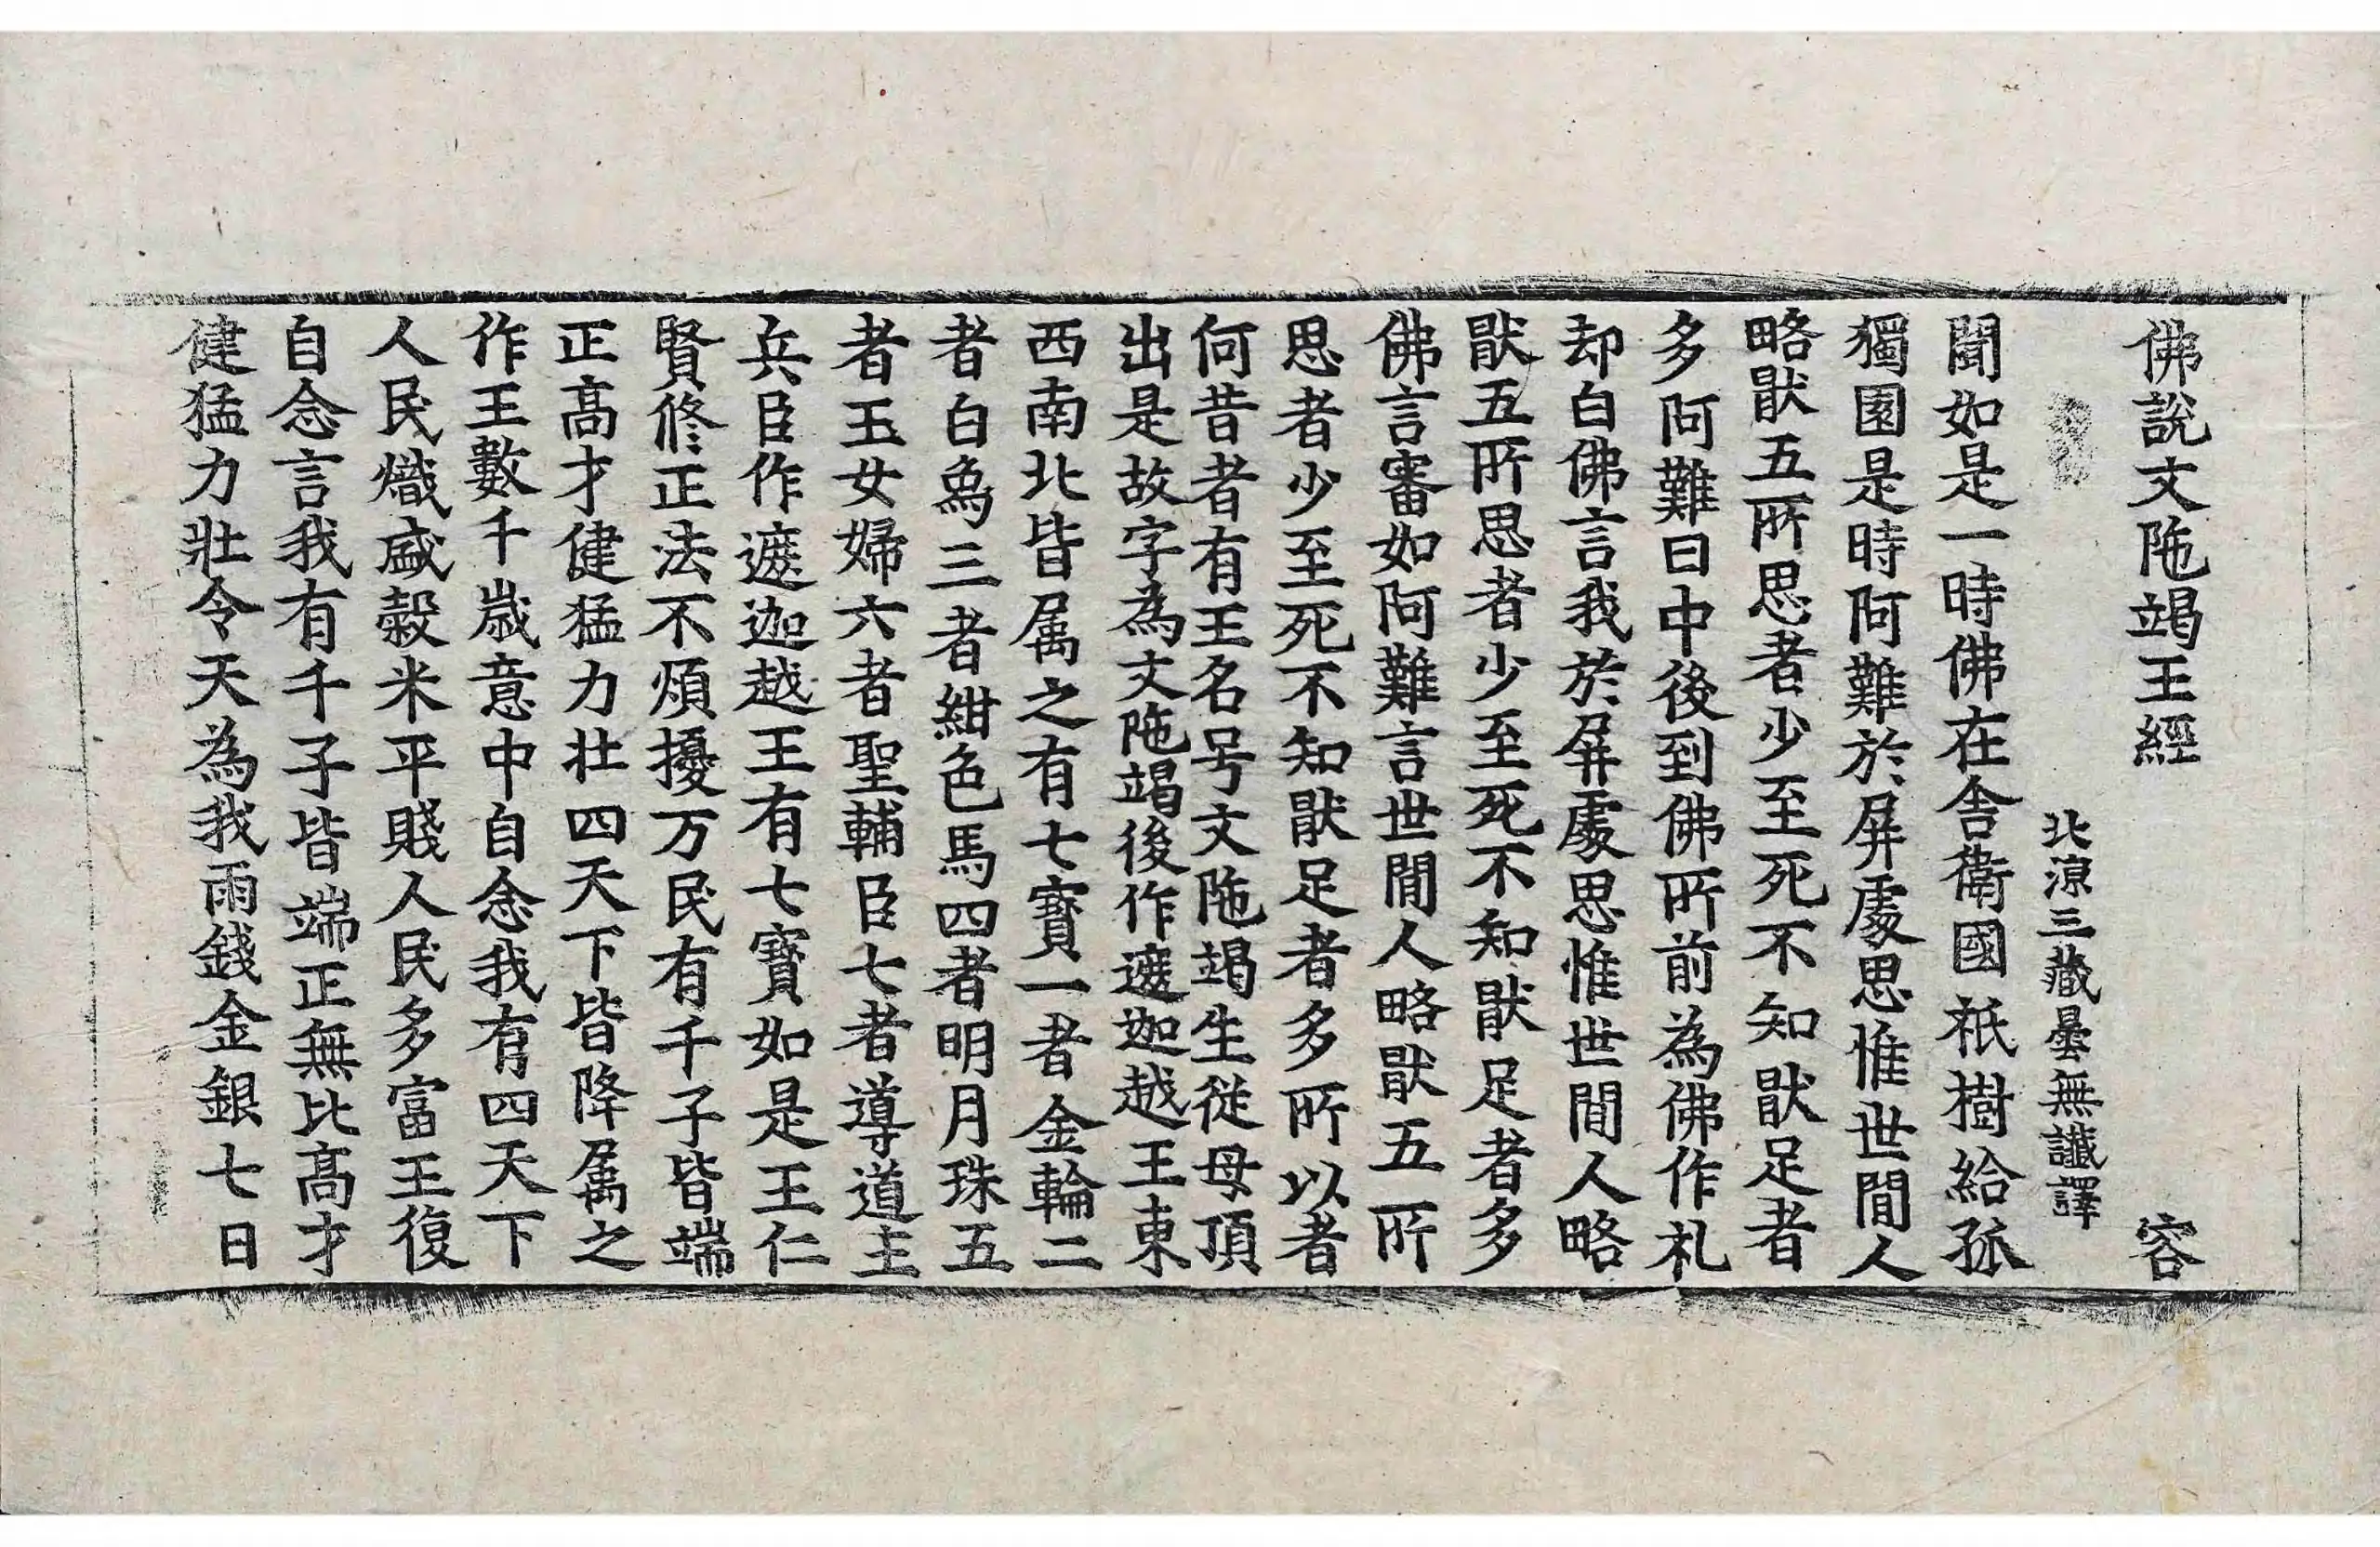 佛說文陁竭王經 容
北涼三藏曇無讖譯
聞如是一時佛在舎衛國祇樹給孤
獨園是時阿難於屏處思惟世閒人
略猒五所思者少至死不知猒足者
多阿難日中後到佛所前為佛作礼
却白佛言我於屏處思惟世閒人略
猒五所思者少至死不知猒足者多
佛言審如阿難言世閒人略猒五所
思者少至死不知猒足者多所以者
何昔者有王名号文陁竭生従母頂
出是故字為文陁竭後作遮迦越王東
西南北皆属之有七寳一者金輪二
者白鳥三者紺色馬四者明月珠五
者玉女婦六者聖輔臣七者導道主
兵臣作遮迦越王有七寳如是王仁
賢修正法不煩擾万民有千子皆端
正髙才健猛力壮四天下皆降属之
作王數千嵗意中自念我有四天下
人民熾盛穀米平賤人民多富王復
自念言我有千子皆端正無比髙才
健猛力壯令天為我雨錢金銀七日